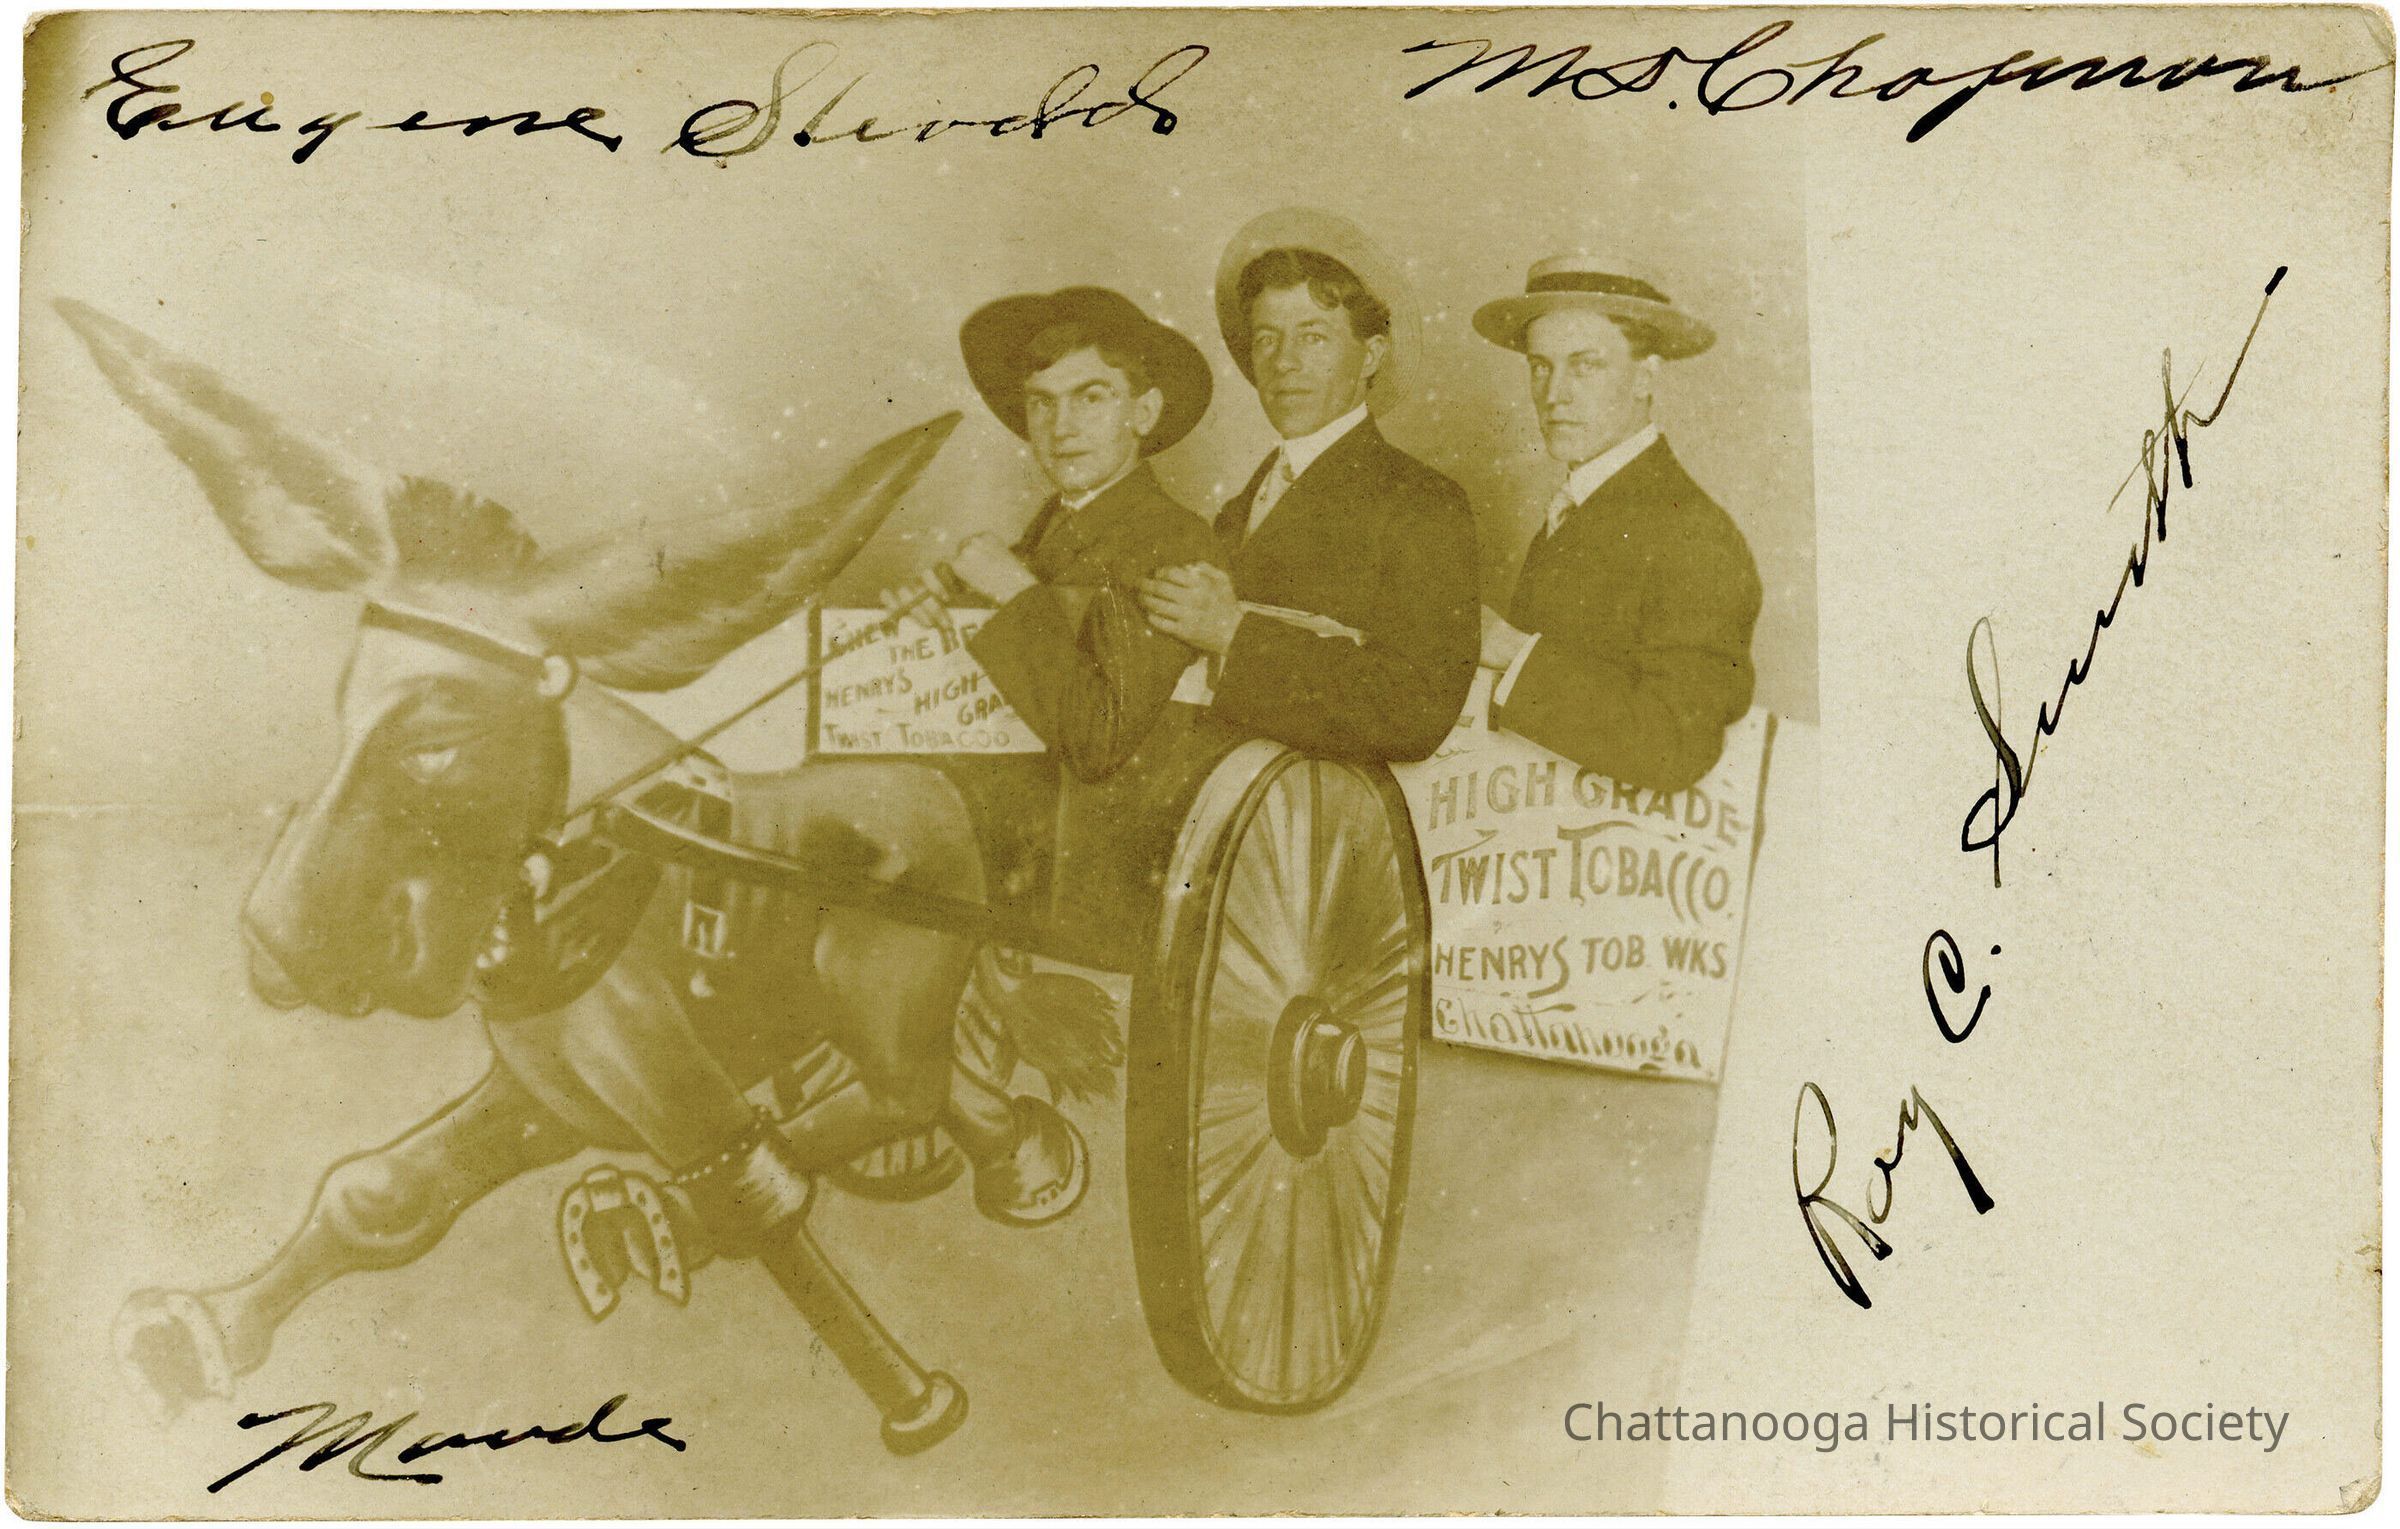 Eugene
M.S. Chapman
CHEW
THE BE
HENRYS
HIGH
GRA
TWIST TOBACCO
HIGH GRADE
TWIST TOBACCO.
HENRYS TOB WKS
Chattanooga
Ray C. Smith
Maude
Chattanooga Historical Society